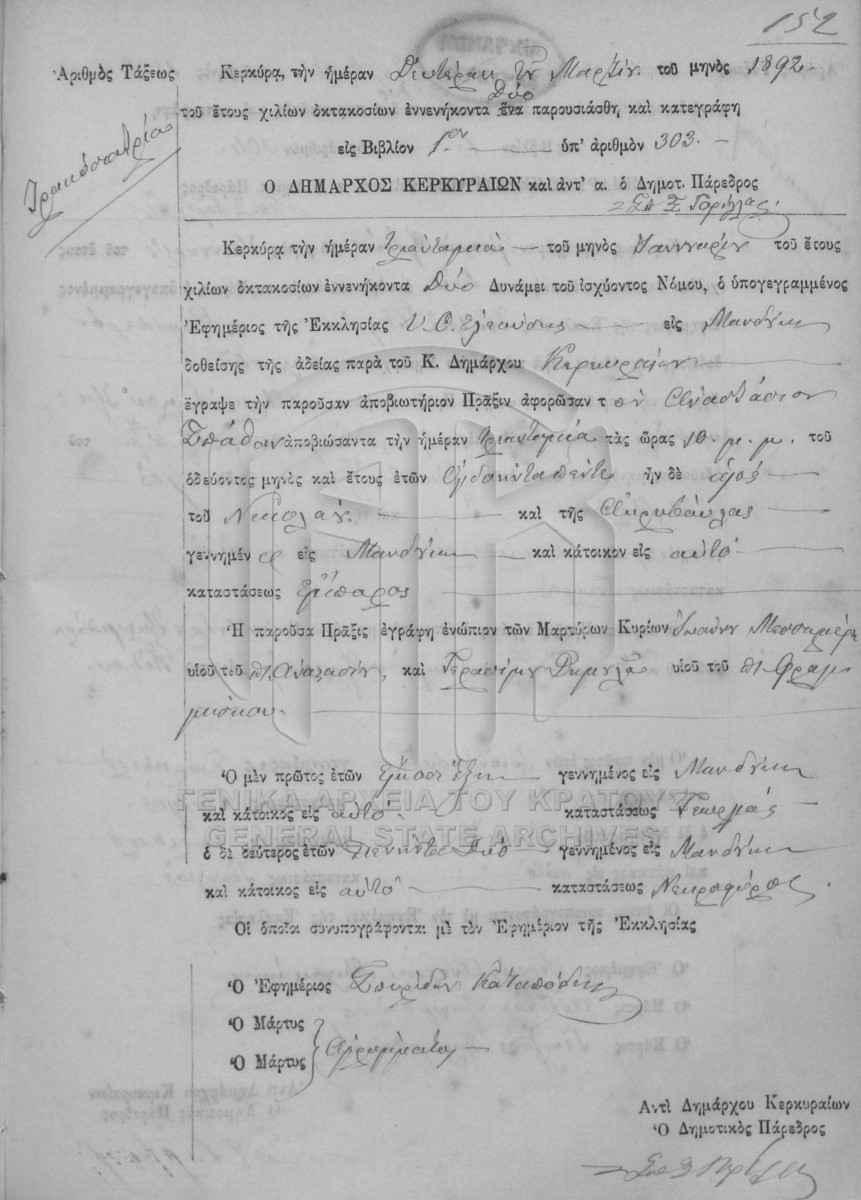 152
Ἀριθμὸς Τάξεως
Κερκύρᾳ, τὴν ἡμέραν Δευτέραν τοῦ Μαρτίου τοῦ μηνὸς 1892.
τοῦ ἔτους χιλίων ὀκτακοσίων ἐννενήκοντα ἕνα δύο παρουσιάσθη καὶ κατεγράφη
εἰς Βιβλίον 1ον ὑπ' ἀριθμὸν 303.
Τριακόσια τρία
Ο ΔΗΜΑΡΧΟΣ ΚΕΡΚΥΡΑΙΩΝ καὶ ἀντ' α. ὁ Δημοτ. Πάρεδρος
Κερκύρᾳ τὴν ἡμέραν τριάντα μιὰ τοῦ μηνὸς Ἰαννουαρίου τοῦ ἔτους
χιλίων ὀκτακοσίων ἐννενήκοντα δύο Δυνάμει τοῦ ἰσχύοντος Νόμου, ὁ ὑπογεγραμμένος
Ἐφημέριος τῆς Ἐκκλησίας Υ. Θ. Ἐλεούσης εἰς Μανδύκι
δοθείσης τῆς ἀδείας παρὰ τοῦ Κ. Δημάρχου Κερκυραίων
ἔγραψε τὴν παροῦσαν ἀποβιωτήριον Πρᾶξιν ἀφορῶσαν τ ὸν Ἀναστάσιον
Σπάθαν ἀποβιώσαντα τὴν ἡμέραν τριανταμία τὰς ὥρας 10 μ. μ. τοῦ
ὁδεύοντος μηνὸς καὶ ἔτους ἐτῶν Ὀγδοήντα πέντε ἦν δὲ υἱός
τοῦ Νικολάου καὶ τῆς Ἀκριβούλας
γεννημέν ος εἰς Μανδύκι καὶ κάτοικον εἰς αὐτό
καταστάσεως
Ἡ παροῦσα Πρᾶξις ἐγράφη ἐνώπιον τῶν Μαρτύρων Κυρίων Ἰωάννου
υἱοῦ τοῦ π. Ἀναστασίου, καὶ Γερασίμου υἱοῦ τοῦ π. Φραγ
κίσκου
Ὁ μὲν πρῶτος ἐτῶν εἴκοσι ἕξι γεννημένος εἰς Μανδύκι
καὶ κάτοικος εἰς αὐτό καταστάσεως Γεωργός
ὁ δὲ δεύτερος ἐτῶν πενήντα δύο γεννημένος εἰς Μανδύκι
καὶ κάτοικος εἰς αὐτό καταστάσεως Νεκροφόρος
Οἱ ὁποῖοι συνυπογράφονται μὲ τὸν Ἐφημέριον τῆς Ἐκκλησίας
Ὁ Ἐφημέριος Σπυρίδων Καταπόδης
Ὁ Μάρτυς
Ὁ Μάρτυς
Ἀγράμματοι
Ἀντὶ Δημάρχου Κερκυραίων
Ὁ Δημοτικὸς Πάρεδρος
ΓΕΝΙΚΑ ΑΡΧΕΙΑ ΤΟΥ ΚΡΑΤΟΥΣ
GENERAL STATE ARCHIVES